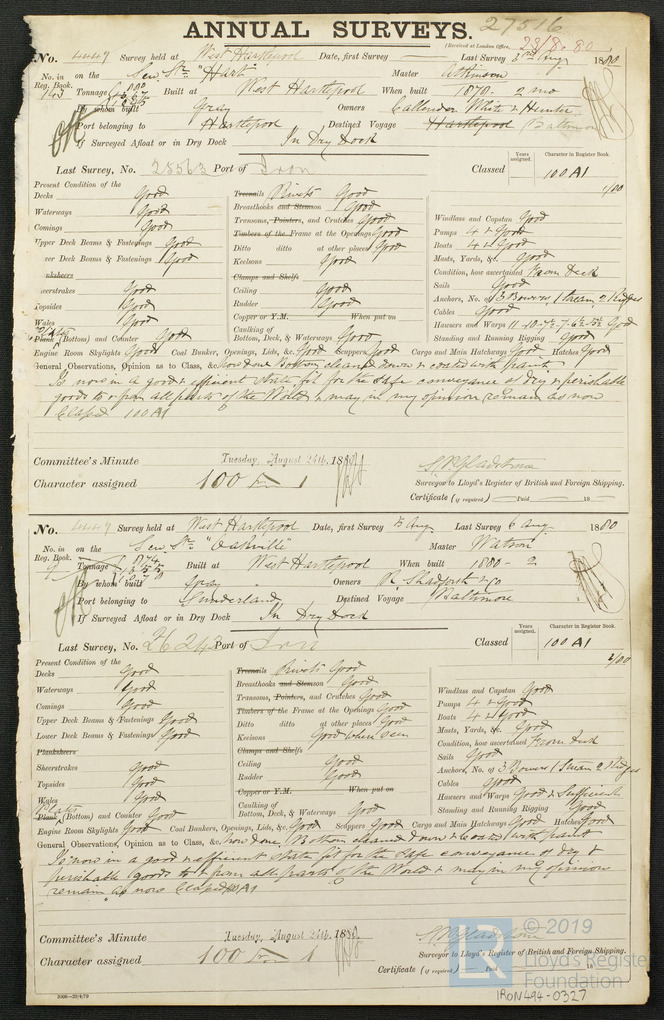 ANNUAL SURVEYS. 27516
(Received at London Office, 28/8.80
No. 4447 Survey held at West Hartlepool Date, first Survey — Last Survey 3rd Aug 1880
No. in Reg. Book. on the Sew. Str. "Hart" Master Atkinson
Tonnage Built at West Hartlepool When built 1878 - 2 mo
By whom built Gray Owners Callender White & Hunter
Port belonging to Hartlepool Destined Voyage Hartlepool Baltimore
If Surveyed Afloat or in Dry Dock In Dry Dock
Years assigned. Character in Register Book.
Last Survey, No. 25563 Port of Iron Classed 100 A1
1/80
Present Condition of the
Decks Good Treenails Rivets Good
Waterways Good Breasthooks and Stemson Good Windlass and Capstan Good
Comings Good Transoms, Pointers, and Crutches Good Pumps 4 Good
Upper Deck Beams & Fastenings Good Timbers of the Frame at the Openings Good Boats 4 Good
wer Deck Beams & Fastenings Good Ditto ditto at other places Good Masts, Yards, &c. Good
nksheers Keelsons Good Condition, how ascertained From Deck
eerstrakes Good Clamps and Shelfs Sails Good
Topsides Good Ceiling Good Anchors, No. of 3 Bowers 1 Stream 2 Kedges
Wales Good Rudder Good Cables Good
Plank (Bottom) and Counter Good Copper or Y.M. When put on Hawsers and Warps Good
Caulking of Bottom, Deck, & Waterways Good Standing and Running Rigging Good
Engine Room Skylights Good Coal Bunker, Openings, Lids, &c. Good Scuppers Good Cargo and Main Hatchways Good Hatches Good
General Observations, Opinion as to Class, &c. how done Bottom cleaned down & coated with paint
Is now in a good & efficient state, fit for the safe conveyance of dry & perishable
goods to & from all parts of the World & may in my opinion remain as now
Classed 100 A1
Committee's Minute Tuesday, August 24th, 1880
Character assigned 100 1
Surveyor to Lloyd's Register of British and Foreign Shipping.
Certificate (if required) Paid 18
No. 4447 Survey held at West Hartlepool Date, first Survey 5 Aug Last Survey 6 Aug 1880
No. in Reg. Book. on the Sew. Str. "Oakville" Master Watson
Tonnage Built at West Hartlepool When built 1880 - 2
By whom built Gray Owners R. Shadforth & Co
Port belonging to Sunderland Destined Voyage Baltimore
If Surveyed Afloat or in Dry Dock In Dry Dock
Years assigned. Character in Register Book.
Last Survey, No. 26243 Port of Iron Classed 100 A1
2/80
Present Condition of the
Decks Good Treenails Rivets Good
Waterways Good Breasthooks and Stemson Good Windlass and Capstan Good
Comings Good Transoms, Pointers, and Crutches Good Pumps 4 Good
Upper Deck Beams & Fastenings Good Timbers of the Frame at the Openings Good Boats 4 Good
Lower Deck Beams & Fastenings Good Ditto ditto at other places Good Masts, Yards, &c. Good
Planksheers Keelsons Good where seen Condition, how ascertained From Deck
Sheerstrakes Good Clamps and Shelfs Sails Good
Topsides Good Ceiling Good Anchors, No. of 3 Bowers 1 Stream 2 Kedges
Wales Good Rudder Good Cables Good
Plank Plate (Bottom) and Counter Good Copper or Y.M. When put on Hawsers and Warps Good & Sufficient
Caulking of Bottom, Deck, & Waterways Good Standing and Running Rigging Good
Engine Room Skylights Good Coal Bunkers, Openings, Lids, &c. Good Scuppers Good Cargo and Main Hatchways Good Hatches Good
General Observations, Opinion as to Class, &c. how done, Bottom cleaned down & Coated with paint
Is now in a good & efficient state fit for the safe conveyance of dry &
perishable goods to & from all parts of the World & may in my opinion
remain as now Classed 100 A1
Committee's Minute Tuesday, August 24th, 1880
Character assigned 100 1
Surveyor to Lloyd's Register of British and Foreign Shipping.
Certificate (if required) Paid 18
© 2019
Lloyd's Register
Foundation
IRON494-0327